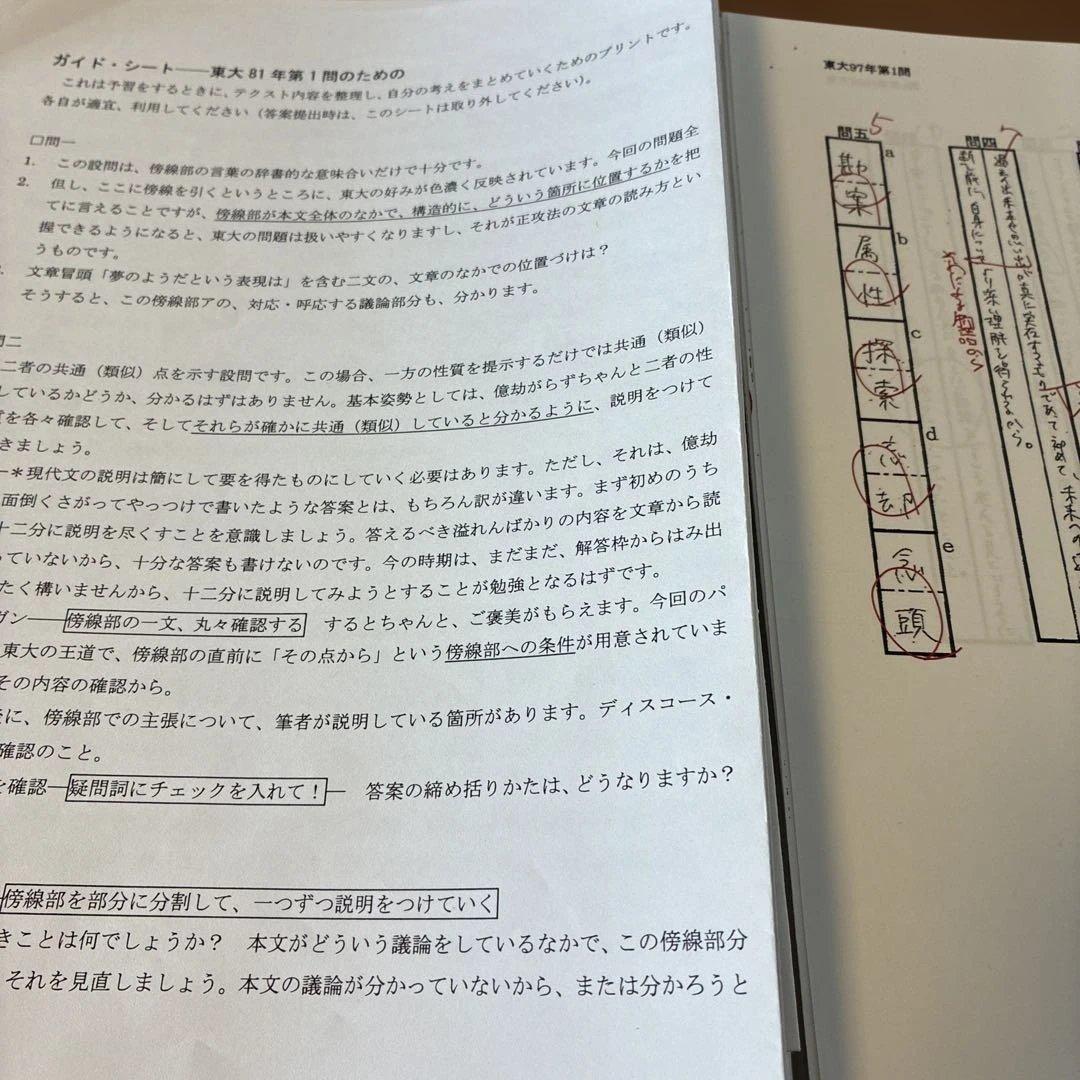 ガイド・シート――東大81年第1問のための
これは予習をするときに、テクスト内容を整理し、自分の考えをまとめていくためのプリントです。
各自が適宜、利用してください（答案提出時は、このシートは取り外してください）。
口問一
1. この設問は、傍線部の言葉の辞書的な意味合いだけで十分です。
2. 但し、ここに傍線を引くというところに、東大の好みが色濃く反映されています。今回の問題全
てに言えることですが、傍線部が本文全体のなかで、構造的に、どういう箇所に位置するかを把
握できるようになると、東大の問題は扱いやすくなりますし、それが正攻法の文章の読み方とい
うものです。
文章冒頭「夢のようだという表現は」を含む二文の、文章のなかでの位置づけは？
そうすると、この傍線部アの、対応・呼応する議論部分も、分かります。
問二
二者の共通（類似）点を示す設問です。この場合、一方の性質を提示するだけでは共通（類似）
しているかどうか、分かるはずはありません。基本姿勢としては、億劫がらずちゃんと二者の性
質を各々確認して、そしてそれらが確かに共通（類似）していると分かるように、説明をつけて
きましょう。
―＊現代文の説明は簡にして要を得たものにしていく必要はあります。ただし、それは、億劫
面倒くさがってやっつけで書いたような答案とは、もちろん訳が違います。まず初めのうち
十二分に説明を尽くすことを意識しましょう。答えるべき溢れんばかりの内容を文章から読
っていないから、十分な答案も書けないのです。今の時期は、まだまだ、解答枠からはみ出
たく構いませんから、十二分に説明してみようとすることが勉強となるはずです。
ガン――傍線部の一文、丸々確認する　するとちゃんと、ご褒美がもらえます。今回のパ
東大の王道で、傍線部の直前に「その点から」という傍線部への条件が用意されていま
その内容の確認から。
に、傍線部での主張について、筆者が説明している箇所があります。ディスコース・
確認のこと。
を確認―疑問詞にチェックを入れて！―　答案の締め括りかたは、どうなりますか？
傍線部を部分に分割して、一つずつ説明をつけていく
きことは何でしょうか？　本文がどういう議論をしているなかで、この傍線部分
それを見直しましょう。本文の議論が分かっていないから、または分かろうと
東大97年第1問
問五
5
a
勘案
b
属性
c
探索
d
忘却
e
念頭
問四
7